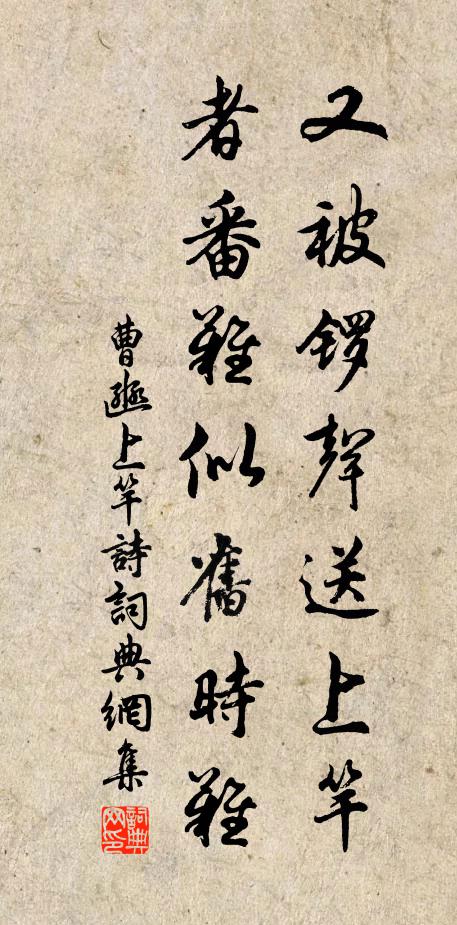 又被锣聲送上竿
者番難似舊時難
曹豳上竿詩詞典網集
詞典网印